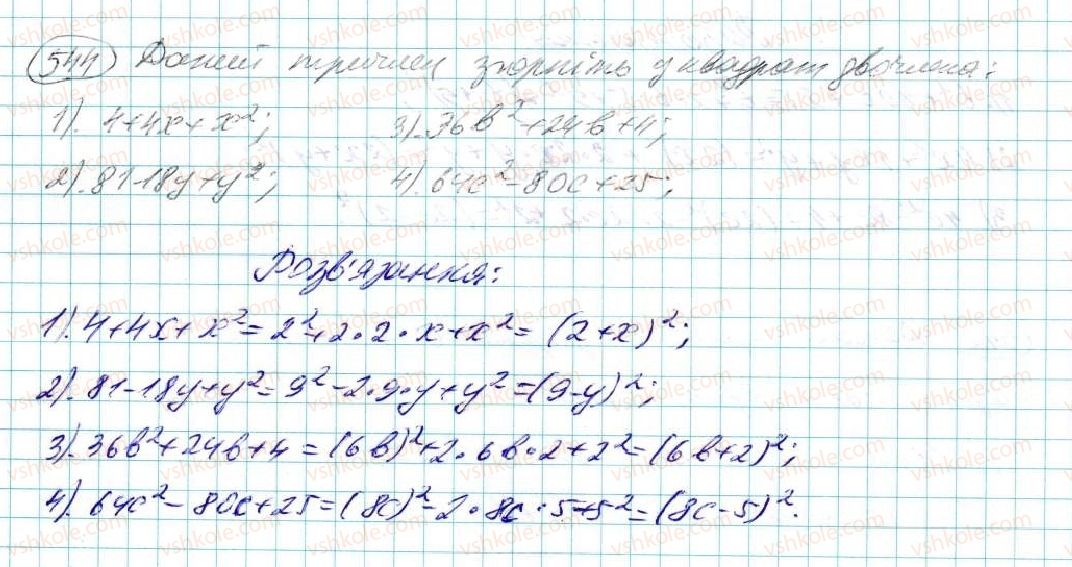 544 Даний тричлен згорніть у квадрат двочлена:
1). 4+4x+x²; 3). 36b²+24b+4;
2). 81-18y+y²; 4). 64c²-80c+25;
Розв'язання:
1). 4+4x+x² = 2²+2·2·x+x² = (2+x)²;
2). 81-18y+y² = 9²-2·9·y+y² = (9-y)²;
3). 36b²+24b+4 = (6b)²+2·6b·2+2² = (6b+2)²;
4). 64c²-80c+25 = (8c)²-2·8c·5+5² = (8c-5)².